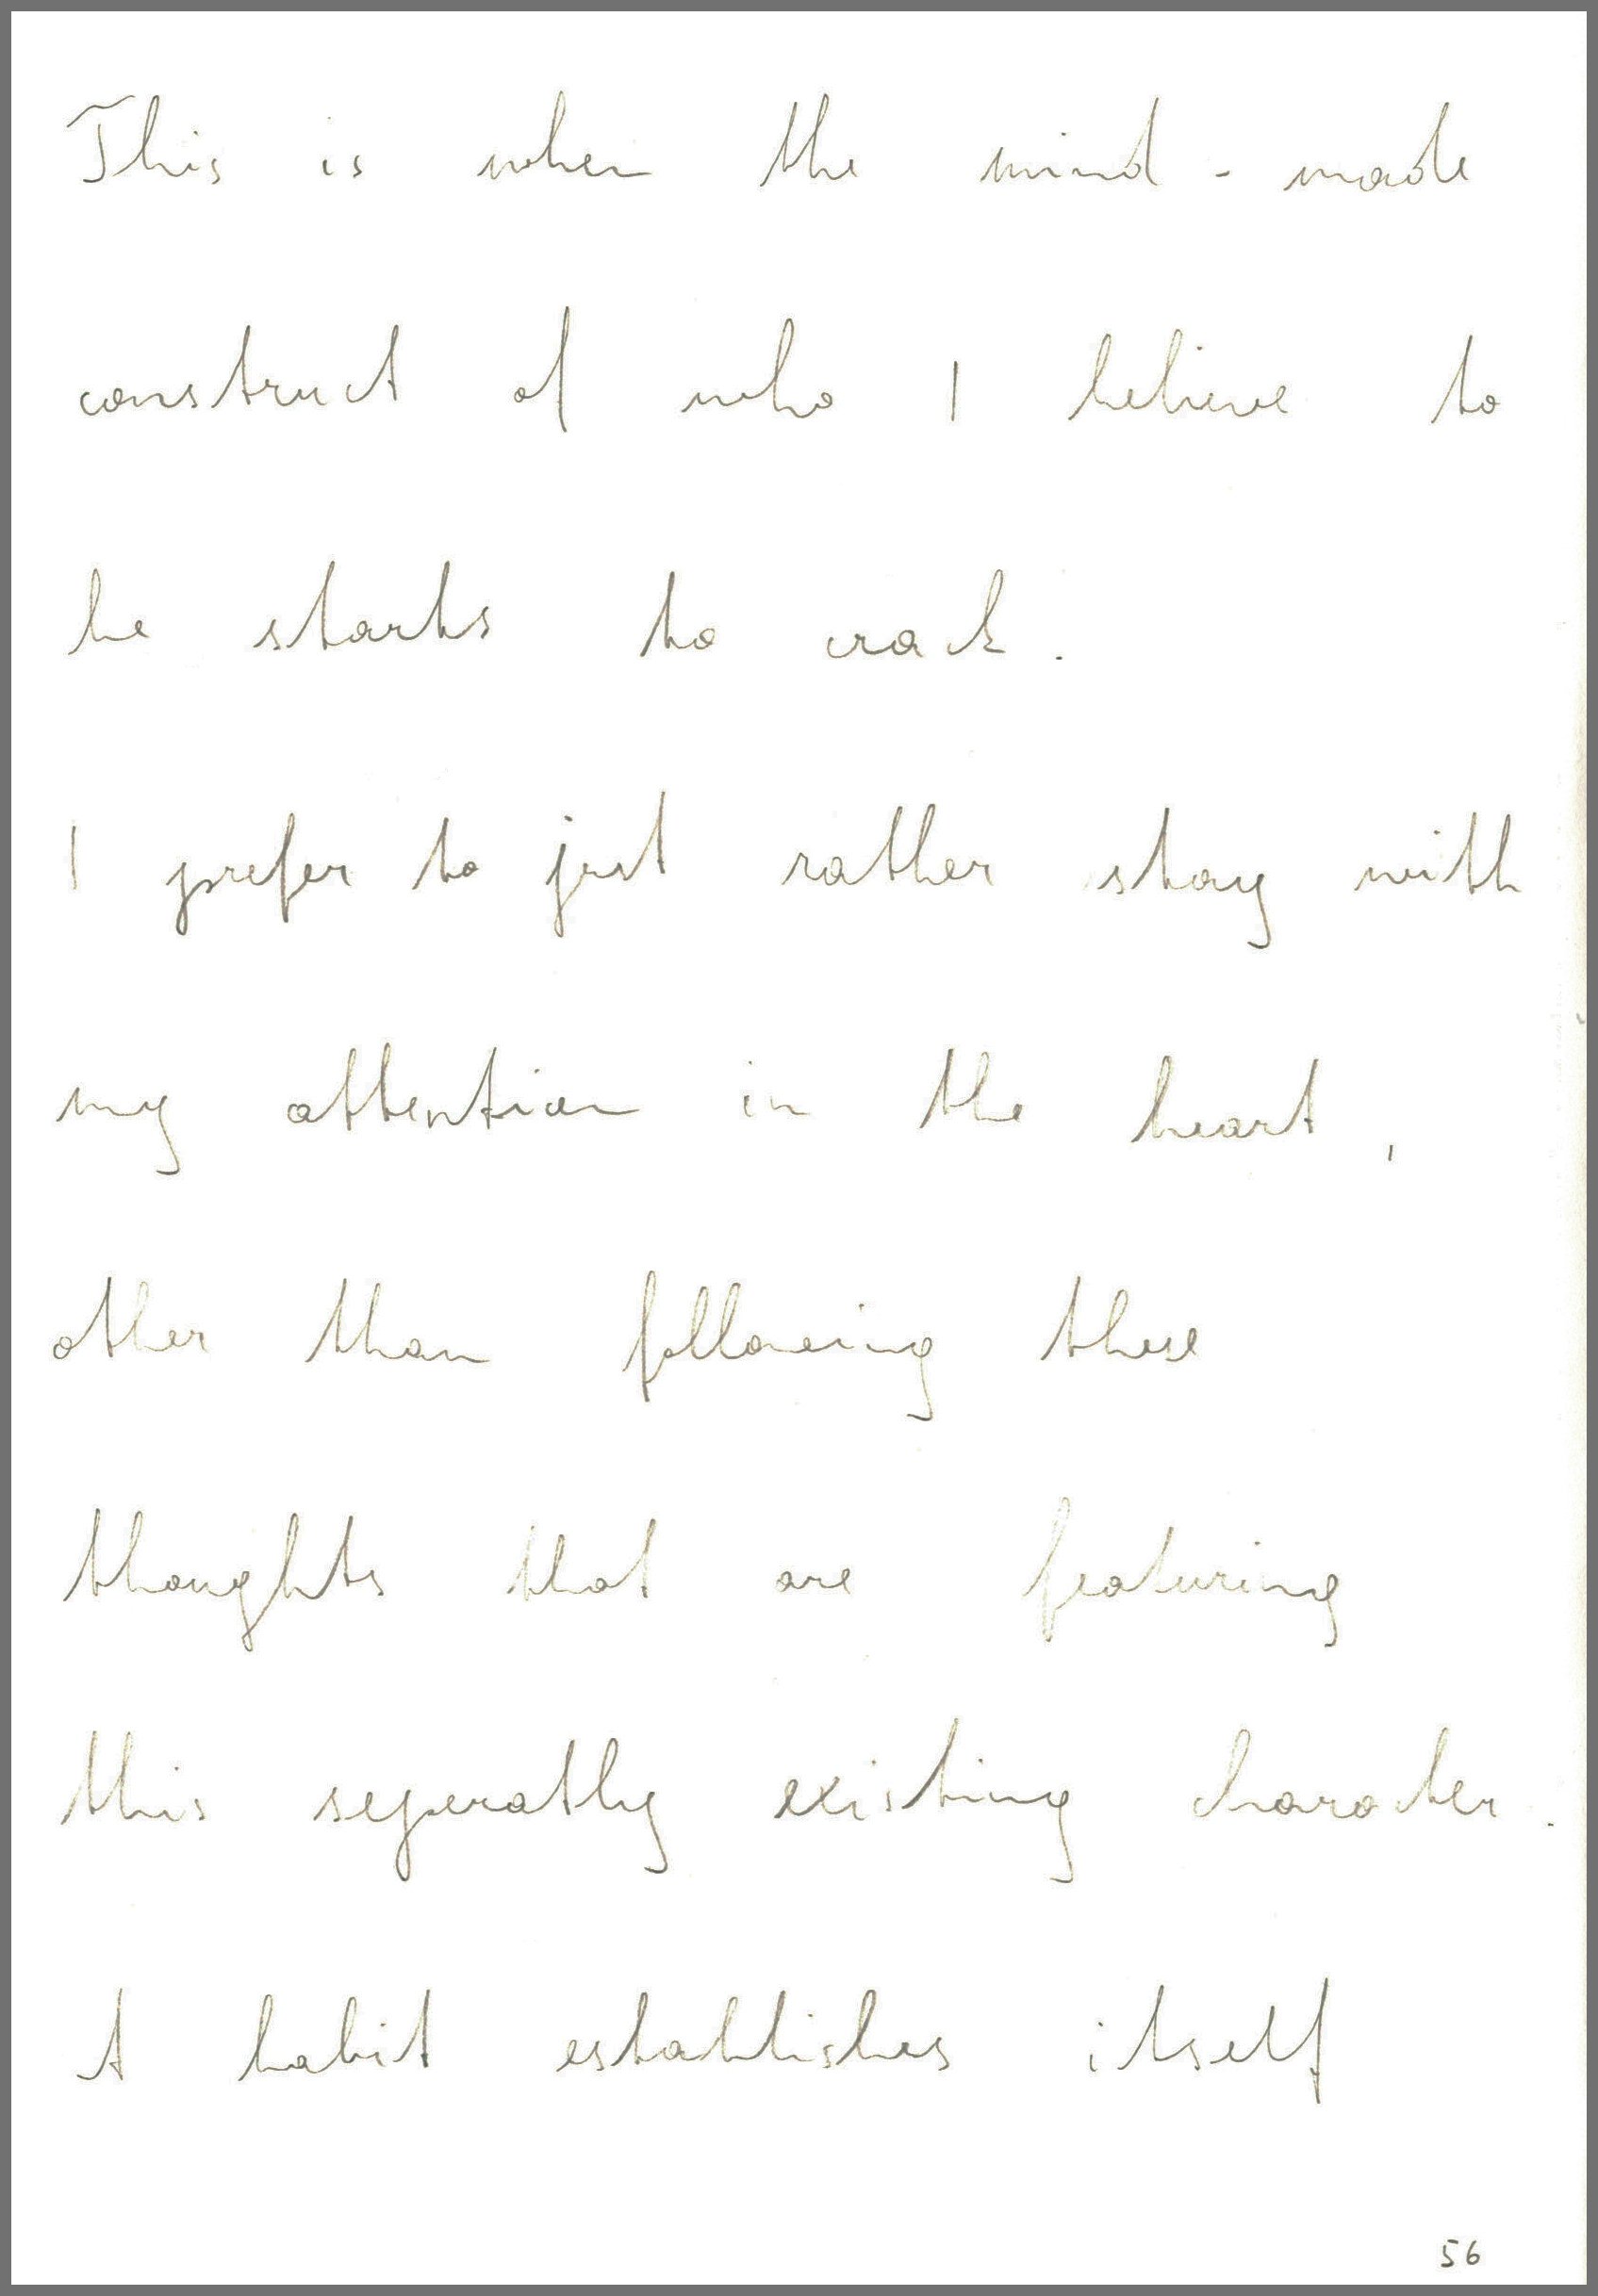 This is when the mind-made
construct of who I believe to
be starts to crack.
I prefer to just rather stay with
my attention in the heart,
other than following these
thoughts that are featuring
this seperatly existing character.
A habit establishes itself
56